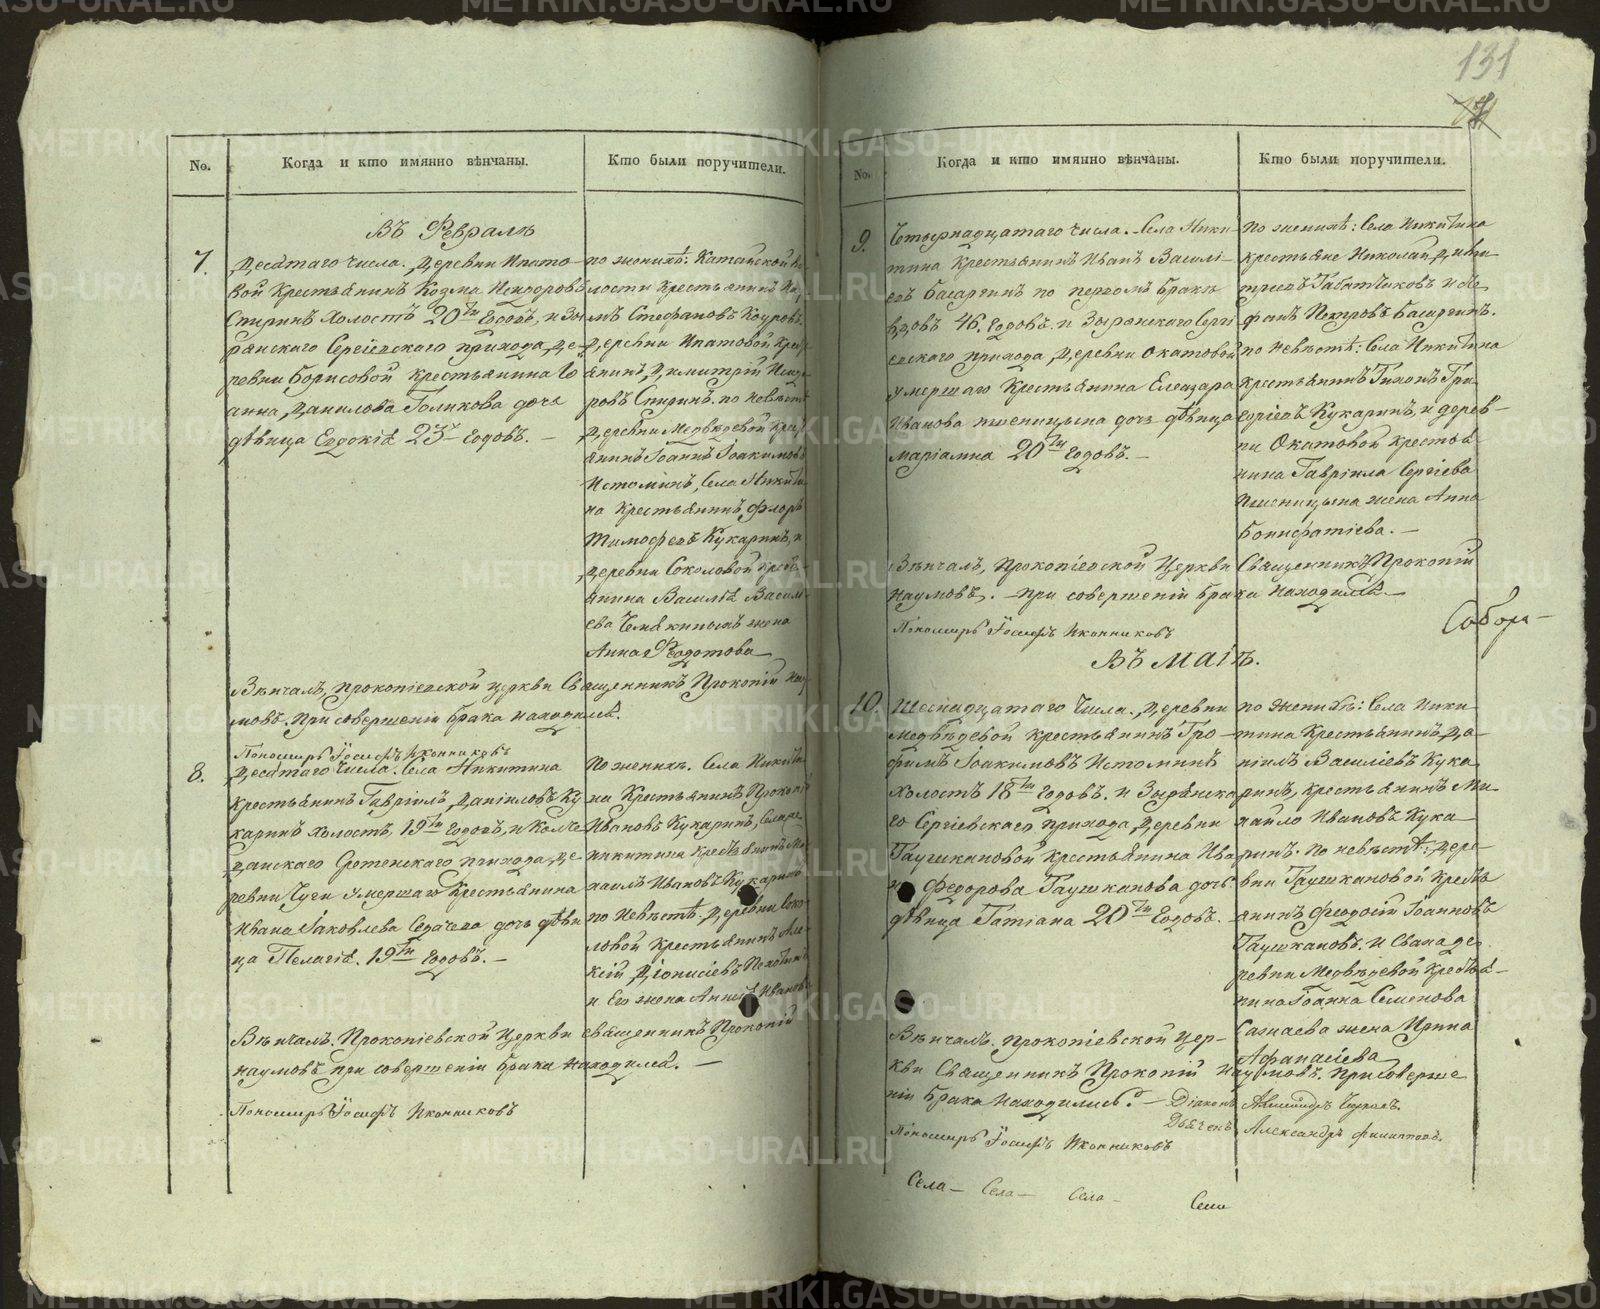 131
No.
Когда и кто имянно вѣнчаны.
Кто были поручители.
Въ Февралѣ
7.
Десятаго числа. Деревни Ипато-
вой крестьянинъ Козма Исидоровъ
Спиринъ холостъ 20ти Годовъ, и Зы
рянскаго Сергіевскаго прихода, де-
ревни Борисовой крестьянина Іо
анна Данилова Голикова дочь
дѣвица Евдокія 23хъ Годовъ. —
по женихѣ: Катайской во-
лости крестьянинъ
Стефановъ
Деревни Ипатовой крес
янинъ Димитрій Исидо
ровъ Спиринъ. по невѣстѣ
Деревни Медвѣдевой крест
янинъ Іоаннъ Іоакимовъ
Истоминъ, Села Никити
на крестьянинъ Флоръ
Тимофеевъ Кукаринъ, и
деревни Соколовой кресть
янина Василья Василь
ева жена
Анна Федотова
Вѣнчалъ, Прокопіевской церкви Священникъ Прокопій Нау
мовъ. При совершеніи брака находился.
Пономарь Іосифъ Иконниковъ
8.
Десятаго числа. Села Никитина
крестьянинъ Гавріилъ Даніиловъ Ку
каринъ холостъ, 19ти Годовъ, и
прихода, де
ревни умершаго крестьянина
Ивана Яковлева дочь дѣви
ца Пелагія. 19ти Годовъ. —
По женихѣ. Села Никити
на Крестьянинъ Прокопій
Ивановъ Кукаринъ,
Никитина крестьянинъ Ми
хаилъ Ивановъ Кукаринъ
по Невѣстѣ. Деревни Соко
ловой крестьянинъ Але
ксій Діонисіевъ
и Его жена Анна Иванова
Вѣнчалъ. Прокопіевской Церкви священникъ Прокопій
Наумовъ при совершеніи брака находился. —
Пономарь Іосифъ Иконниковъ
No.
Когда и кто имянно вѣнчаны.
Кто были поручители.
9.
Четырнадцатаго числа. Села Ники
тина крестьянинъ Иванъ Василі-
евъ Басаргинъ по первомъ бракѣ
вдовъ 46. Годовъ. и Зырянскаго Сергі
евскаго прихода, Деревни Окатовой
умершаго Крестьянина Елеазара
Иванова Пшеницына дочь дѣвица
Маріамна 20ти Годовъ. —
по женихѣ: Села Никитина
крестьяне Николай Дими
тріевъ и Сте
фанъ Петровъ Басаргинъ.
по невѣстѣ: Села Никитина
крестьянинъ Тихонъ Гри
горіевъ Кукаринъ, и дерев-
ни Окатовой крестья
нина Гавріила Сергіева
Пшеницына жена Анна
Бонифатіева. —
Вѣнчалъ, Прокопіевской Церкви Священникъ Прокопій
Наумовъ. — при совершеніи брака находился. —
Пономарь Іосифъ Иконниковъ
Собор—
Въ Маіѣ.
10.
Шеснадцатаго Числа. Деревни
Медвѣдевой крестьянинъ Тро-
фимъ Іоакимовъ Истоминъ
холостъ 18ти Годовъ. и Зырянска
го Сергіевскаго прихода, Деревни
Гаушкановой крестьянина Ива
на Федорова Гаушканова дочь
дѣвица Татіана 20ти Годовъ.
по женихѣ: Села Ники
тина Крестьянинъ Да-
ніилъ Василіевъ Кука
ринъ, крестьянинъ Ми
хайло Ивановъ Кука
ринъ. по невѣстѣ: Дере-
вни Гаушкановой кресть
янинъ Феодосій Іоанновъ
Гаушкановъ. и Сваха де
ревни Медвѣдевой кресть
янина Іоанна Семенова
жена Ирина
Афанасіева
Вѣнчалъ. Прокопіевской Цер-
кви Священникъ Прокопій Наумовъ. При соверше
ніи брака находились: — Діаконъ
Дьячекъ Александръ Филиповъ.
Пономарь Іосифъ Иконниковъ
Села — Села — Села —